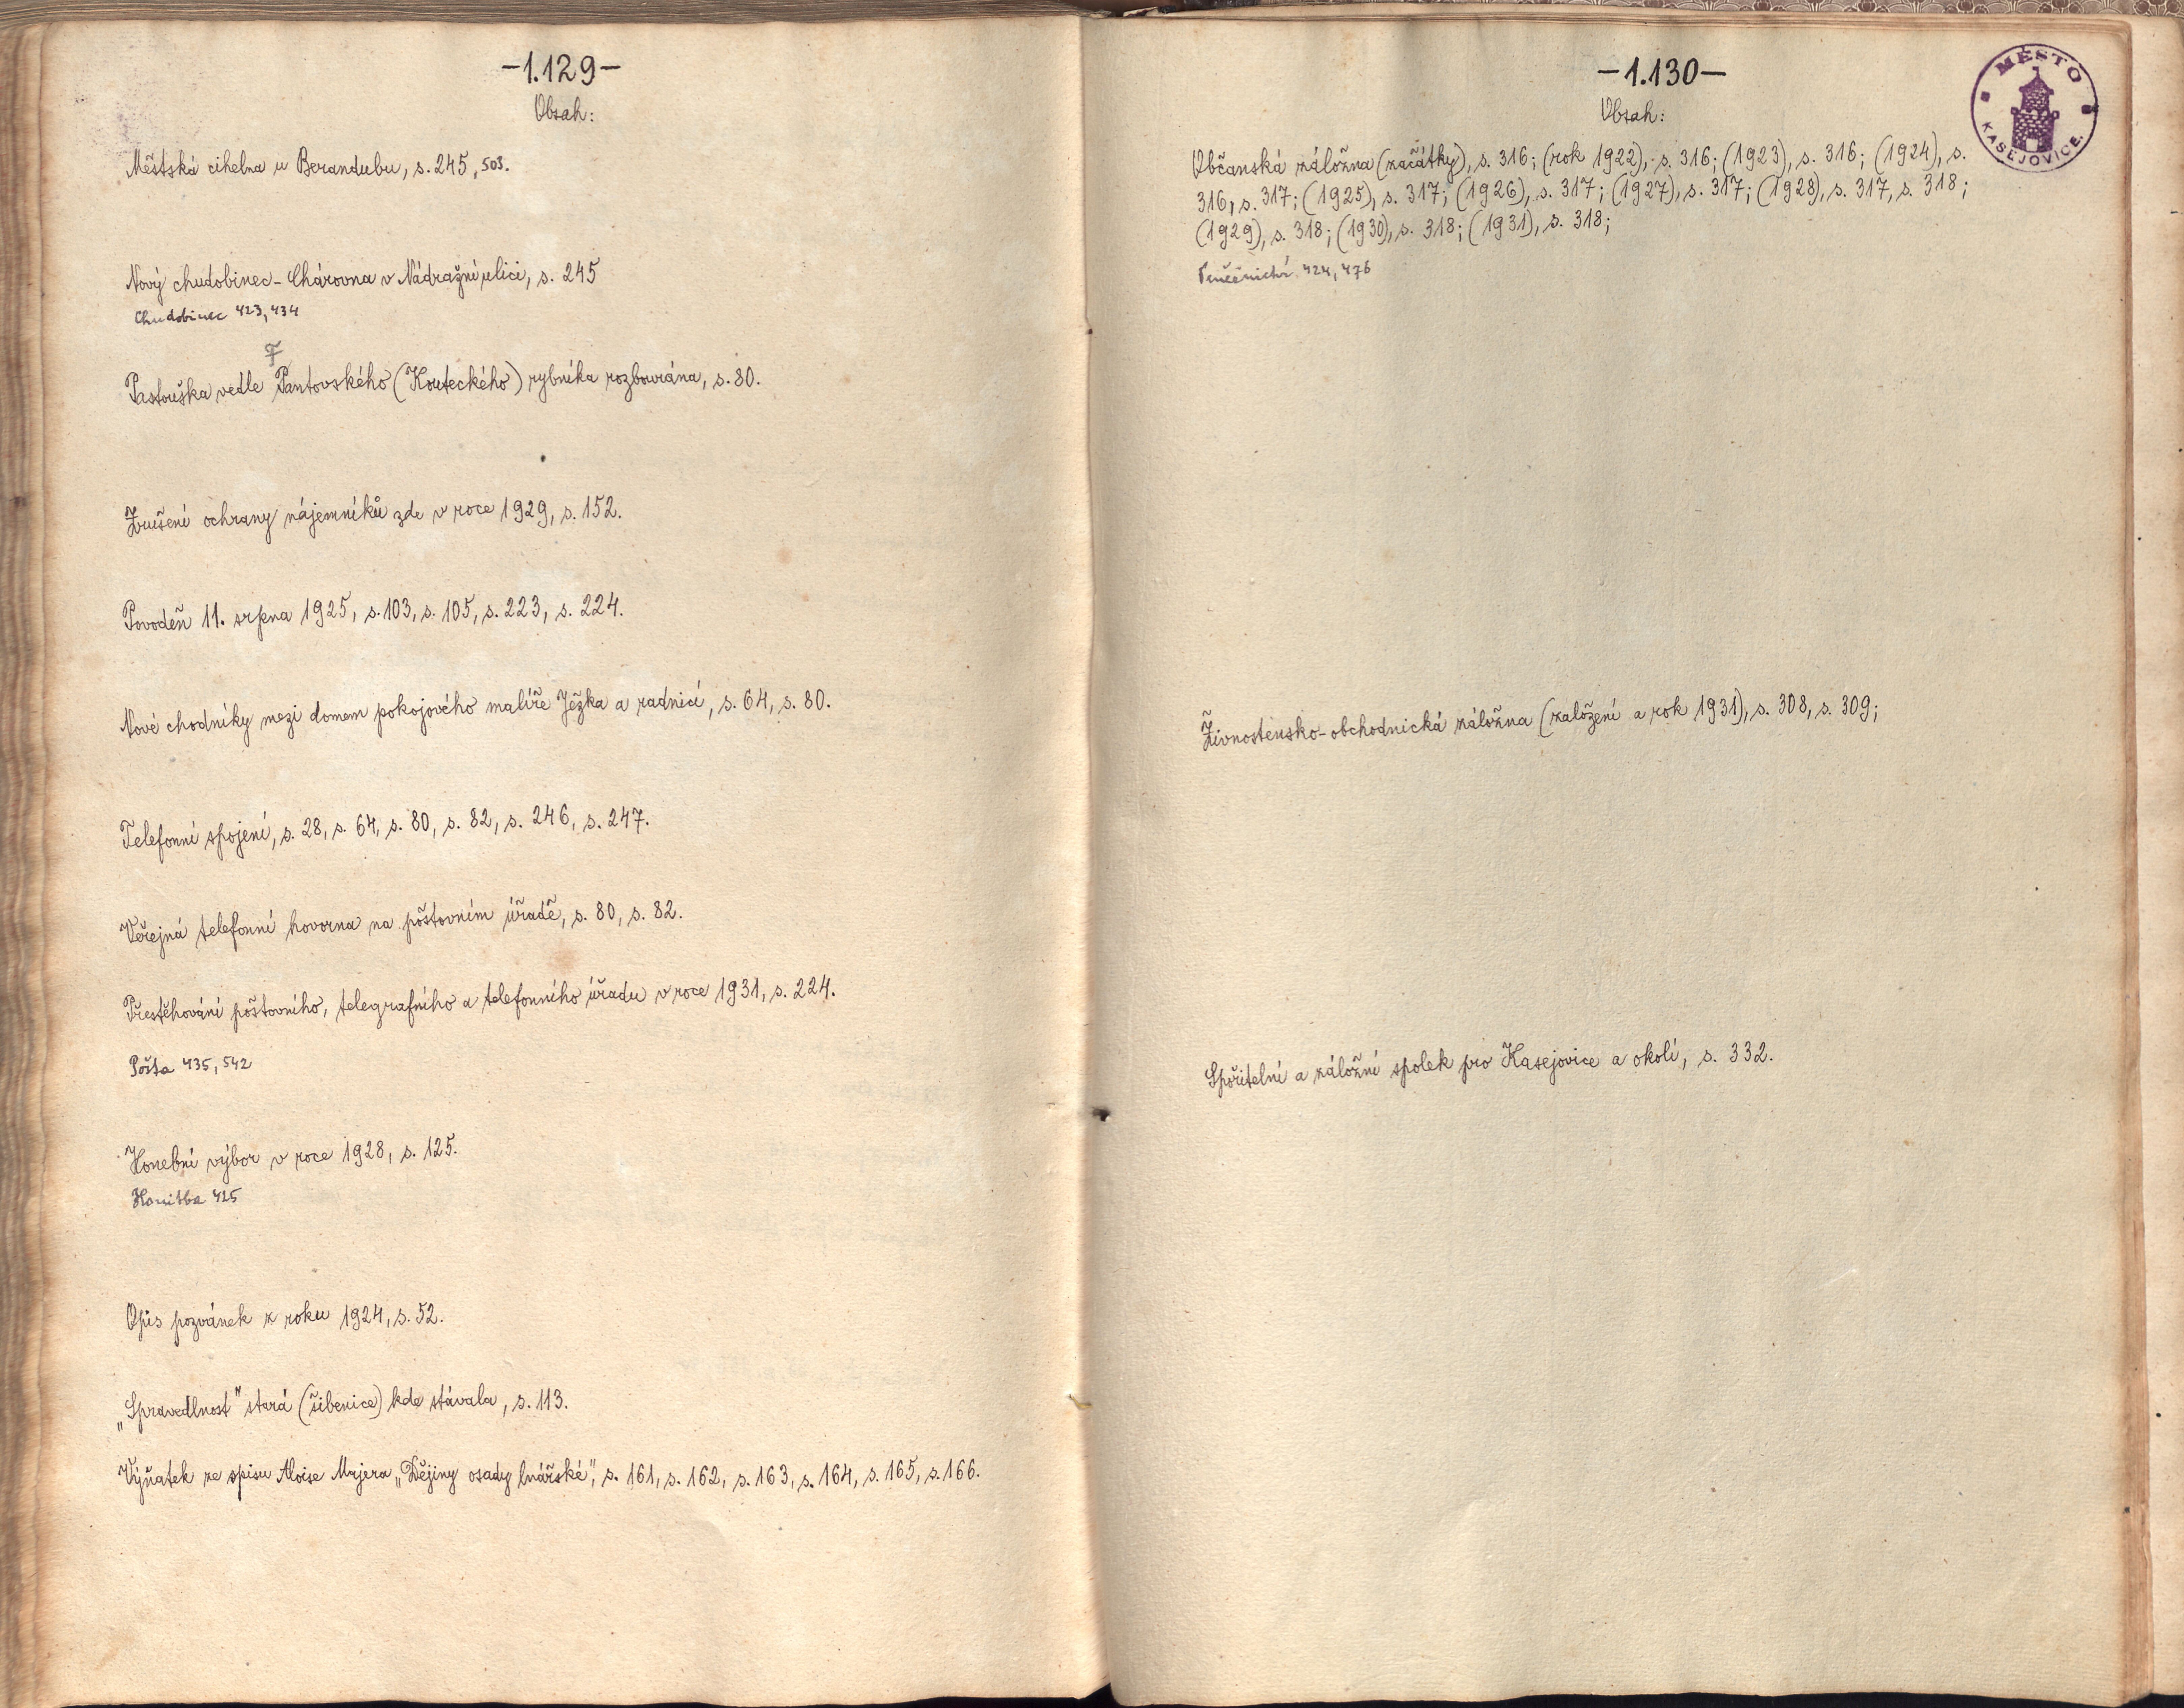 -1.129-
Obsah:
Městská cihelna u Berandubu, s. 245, 503.
Nový chudobinec - Chárovna v Nádražní ulici, s. 245
Chudobinec 423, 434
F
Pastouška vedle Pantovského (Kouteckého) rybníka rozbourána, s. 80.
Zrušení ochrany nájemníků zde v roce 1929, s. 152.
Povodeň 11. srpna 1925, s. 103, s. 105, s. 223, s. 224.
Nové chodníky mezi domem pokojového malíře Ježka a radnicí, s. 64, s. 80.
Telefonní spojení, s. 28, s. 64, s. 80, s. 82, s. 246, s. 247.
Veřejná telefonní hovorna na poštovním úřadě, s. 80, s. 82.
Přestěhování poštovního, telegrafního a telefonního úřadu v roce 1931, s. 224.
Pošta 435, 542
Honební výbor v roce 1928, s. 125.
Honitba 425
Opis pozvánek z roku 1924, s. 52.
„Spravedlnost" stará (šibenice) kde stávala, s. 113.
Výňatek ze spisu Aloise Majera „Dějiny osady lnářské", s. 161, s. 162, s. 163, s. 164, s. 165, s. 166.
-1.130-
Obsah:
MĚSTO KASEJOVICE.
Občanská záložna (začátky), s. 316; (rok 1922), s. 316; (1923), s. 316; (1924), s.
316, s. 317; (1925), s. 317; (1926), s. 317; (1927), s. 317; (1928), s. 317, s. 318;
(1929), s. 318; (1930), s. 318; (1931), s. 318;
Peněžnictví 424, 476
Živnostensko-obchodnická záložna (založení a rok 1931), s. 308, s. 309;
Spořitelní a záložní spolek pro Kasejovice a okolí, s. 332.